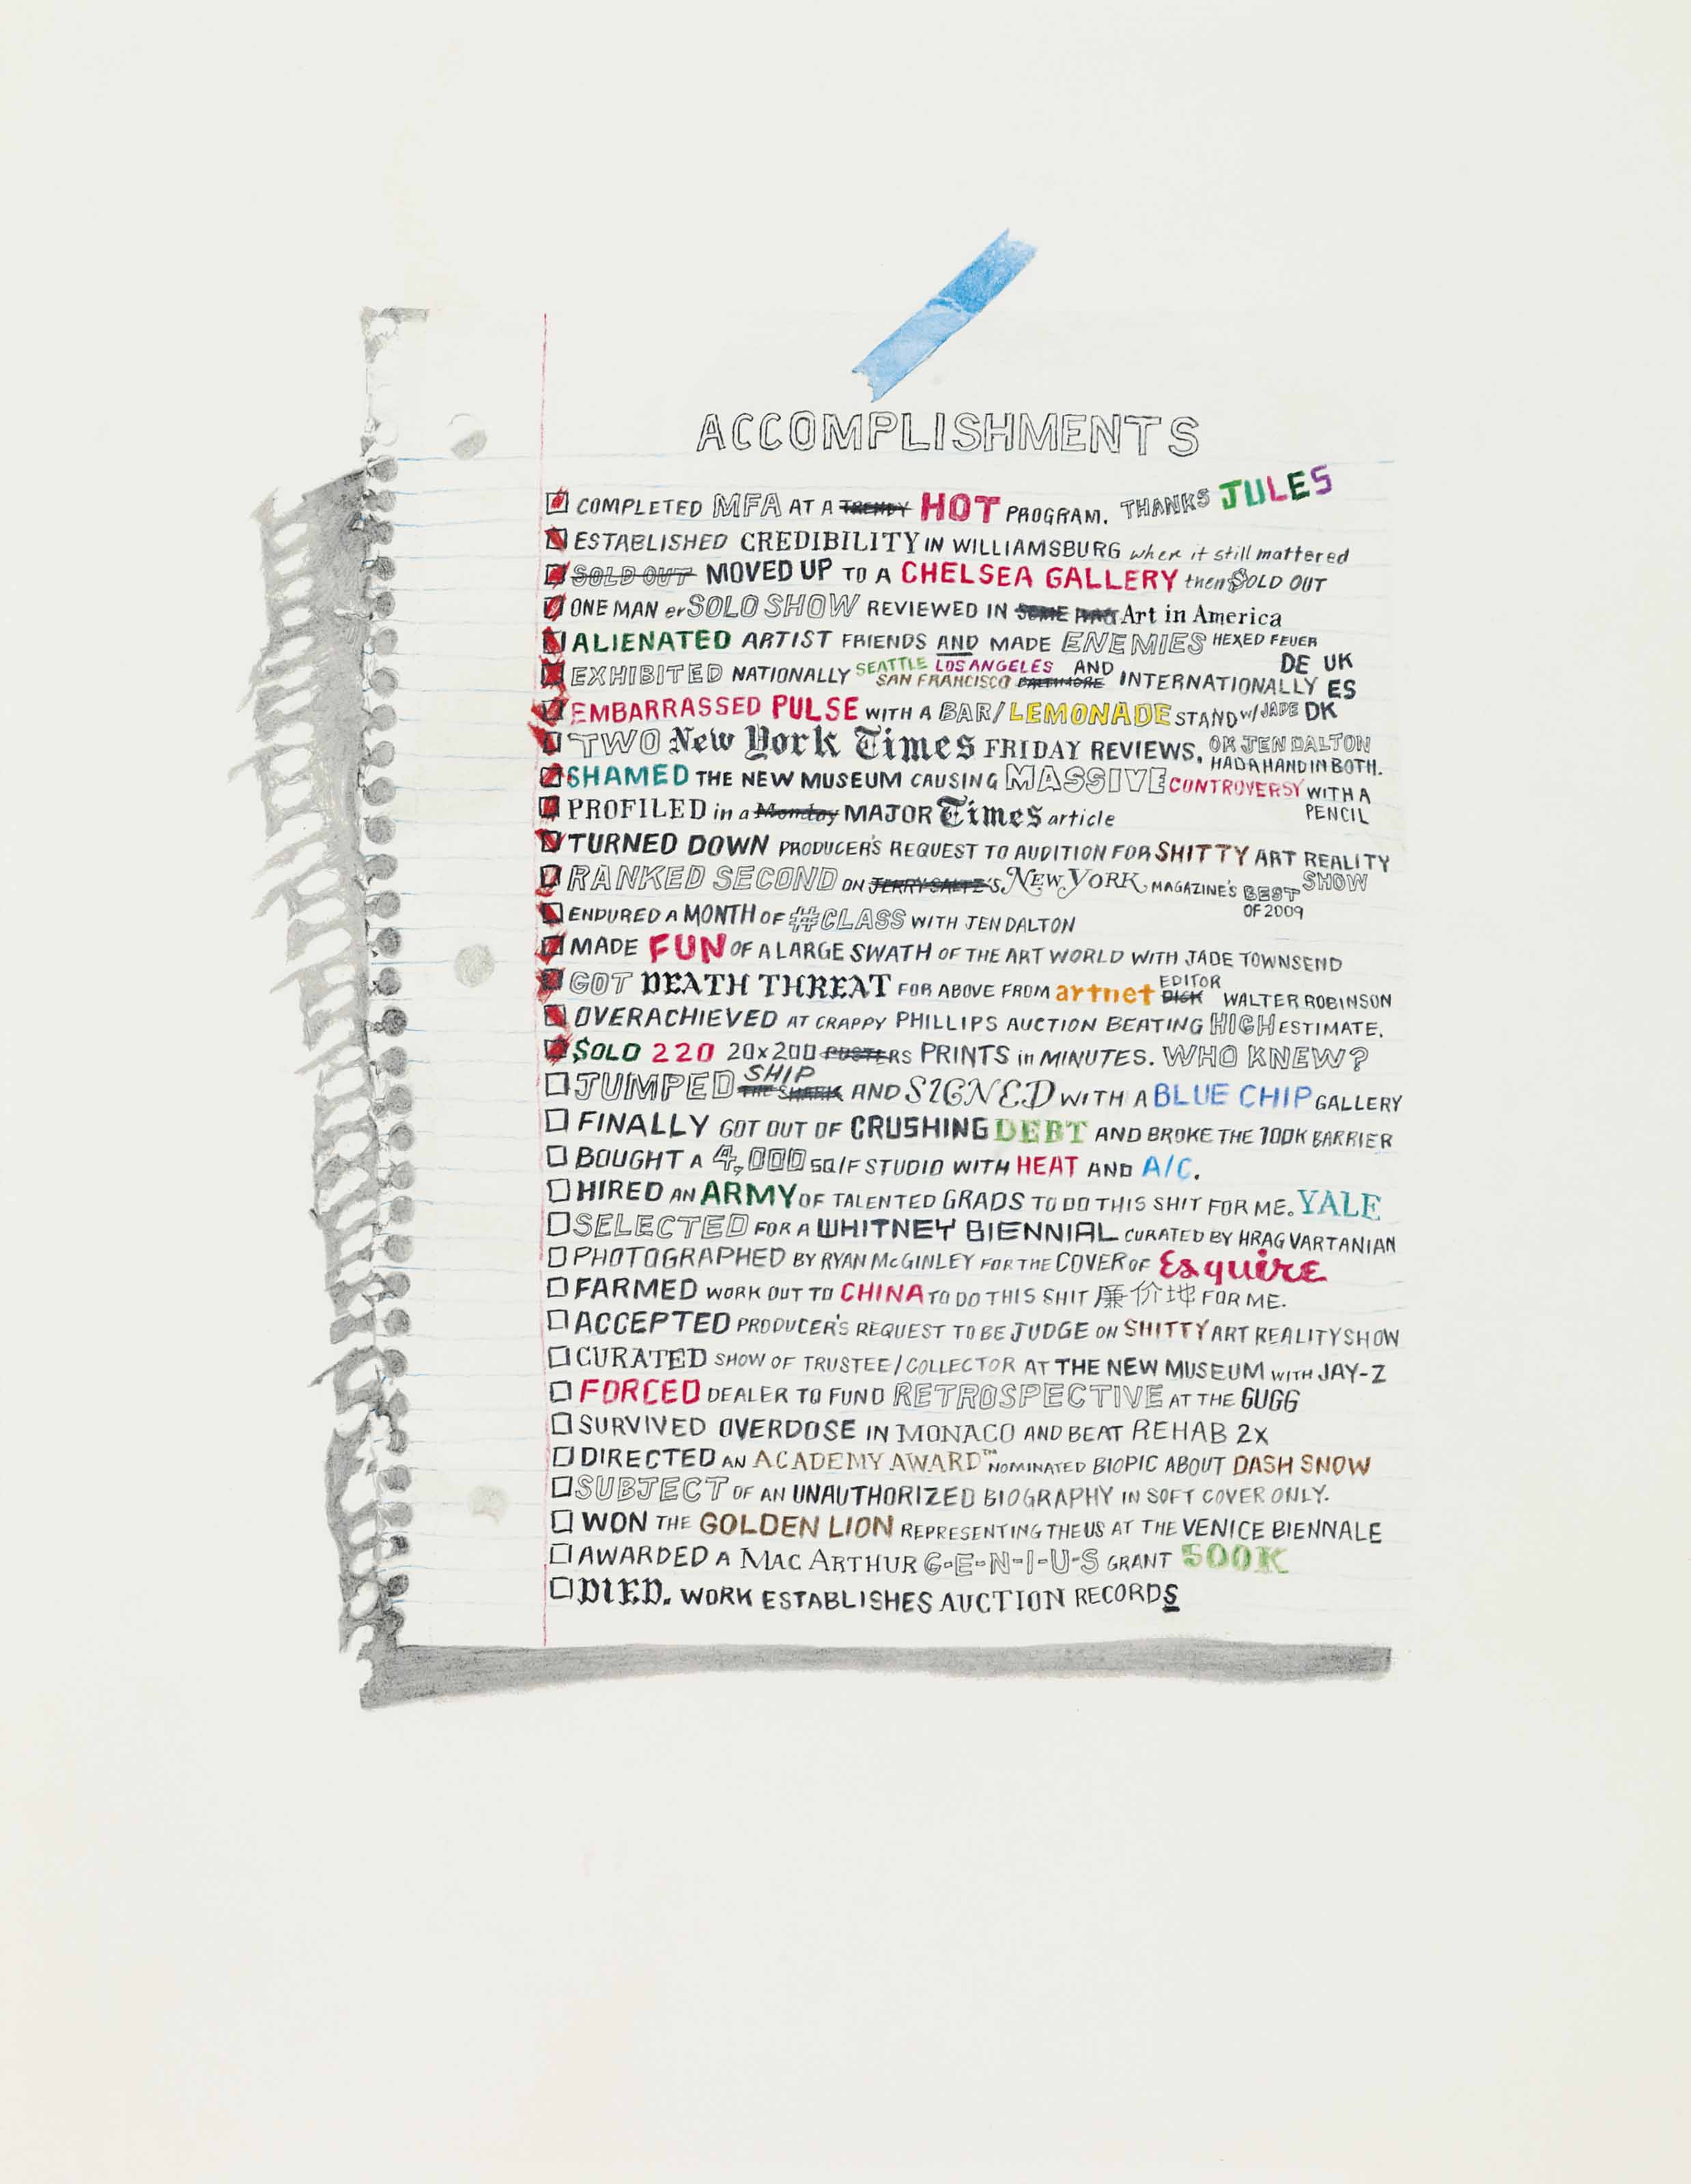 ACCOMPLISHMENTS
COMPLETED MFA AT A TRENDY HOT PROGRAM. THANKS JULES
ESTABLISHED CREDIBILITY IN WILLIAMSBURG when it still mattered
SOLD OUT MOVED UP TO A CHELSEA GALLERY then $OLD OUT
ONE MAN er SOLO SHOW REVIEWED IN SOME Art in America
ALIENATED ARTIST FRIENDS AND MADE ENEMIES HEXED FEUER
EXHIBITED NATIONALLY SEATTLE LOS ANGELES SAN FRANCISCO BALTIMORE AND INTERNATIONALLY DE UK ES DK
EMBARRASSED PULSE WITH A BAR/LEMONADE STAND W/JADE
TWO New York Times FRIDAY REVIEWS. OK JEN DALTON HAD A HAND IN BOTH.
SHAMED THE NEW MUSEUM CAUSING MASSIVE CONTROVERSY WITH A PENCIL
PROFILED in a Monday MAJOR Times article
TURNED DOWN PRODUCER'S REQUEST TO AUDITION FOR SHITTY ART REALITY SHOW
RANKED SECOND ON JERRY SALTZ'S NEW YORK MAGAZINE'S BEST OF 2009
ENDURED A MONTH OF #CLASS WITH JEN DALTON
MADE FUN OF A LARGE SWATH OF THE ART WORLD WITH JADE TOWNSEND
GOT DEATH THREAT FOR ABOVE FROM artnet DICK EDITOR WALTER ROBINSON
OVERACHIEVED AT CRAPPY PHILLIPS AUCTION BEATING HIGH ESTIMATE.
$OLD 220 20x200 POSTERS PRINTS in MINUTES. WHO KNEW?
JUMPED THE SHARK SHIP AND SIGNED WITH A BLUE CHIP GALLERY
FINALLY GOT OUT OF CRUSHING DEBT AND BROKE THE 100K BARRIER
BOUGHT A 4,000 SQ/F STUDIO WITH HEAT AND A/C.
HIRED AN ARMY OF TALENTED GRADS TO DO THIS SHIT FOR ME. YALE
SELECTED FOR A WHITNEY BIENNIAL CURATED BY HRAG VARTANIAN
PHOTOGRAPHED BY RYAN McGINLEY FOR THE COVER OF Esquire
FARMED WORK OUT TO CHINA TO DO THIS SHIT 廉价地 FOR ME.
ACCEPTED PRODUCER'S REQUEST TO BE JUDGE ON SHITTY ART REALITY SHOW
CURATED SHOW OF TRUSTEE/COLLECTOR AT THE NEW MUSEUM WITH JAY-Z
FORCED DEALER TO FUND RETROSPECTIVE AT THE GUGG
SURVIVED OVERDOSE IN MONACO AND BEAT REHAB 2X
DIRECTED AN ACADEMY AWARD™ NOMINATED BIOPIC ABOUT DASH SNOW
SUBJECT OF AN UNAUTHORIZED BIOGRAPHY IN SOFT COVER ONLY.
WON THE GOLDEN LION REPRESENTING THE US AT THE VENICE BIENNALE
AWARDED A MAC ARTHUR G-E-N-I-U-S GRANT 500K
DIED. WORK ESTABLISHES AUCTION RECORDS